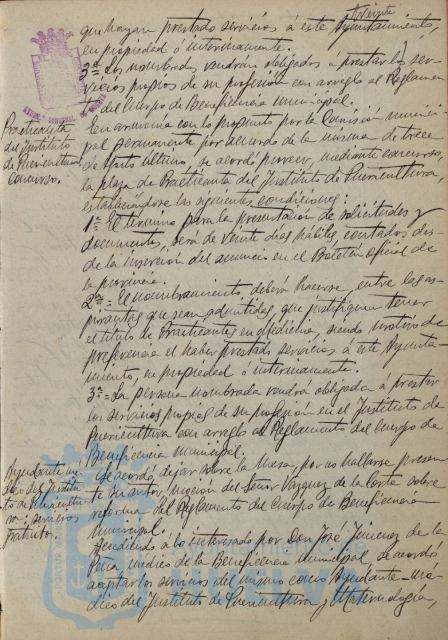 que hayan prestado servicios á este Ayuntamiento,
en propiedad ó interinamente.
3ª Los nombrados vendrán obligados á prestar los ser-
vicios propios de su profesión con arreglo al Reglamen-
to del Cuerpo de Beneficencia municipal.
Practicante
del Instituto
de Puericultura,
concurso.
En armonía con lo propuesto por la Comisión munici-
pal permanente por acuerdo de la misma de trece
de Agosto último, se acordó proveer, mediante concurso,
la plaza de Practicante del Instituto de Puericultura,
estableciéndose las siguientes condiciones:
1ª El término para la presentación de solicitudes y
documentos, será de veinte días hábiles contados des-
de la inserción del anuncio en el Boletín oficial de
la provincia.
2ª = El nombramiento deberá hacerse, entre los as-
pirantes que sean admitidos, que justifiquen tener
el título de Practicantes en Medicina, siendo motivo de
preferencia el haber prestado servicios á este Ayunta-
miento, en propiedad ó interinamente.
3ª = La persona nombrada vendrá obligada á prestar
los servicios propios de su profesión en el Instituto de
Puericultura con arreglo al Reglamento del Cuerpo de
Beneficencia municipal.
Se acordó dejar sobre la Mesa, por no hallarse presen-
te su autor, moción del Señor Vazquez de la Corte sobre
reforma del Reglamento del Cuerpo de Beneficencia
Municipal.
Ayudante mé-
dico del Institu-
to de Puericultu-
ra: servicios
gratuitos.
Accediendo á lo interesado por Don José Jimenez de la
médico de la Beneficencia Municipal se acordó
aceptar los servicios del mismo como Ayudante-Mé-
dico del Instituto de Puericultura y Maternología,